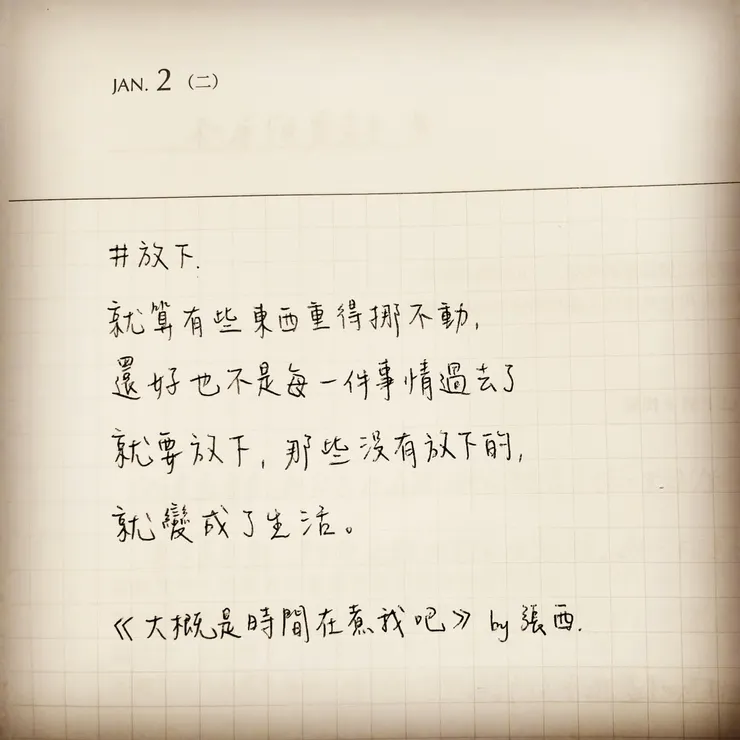 JAN. 2 (二)
#放下.
就算有些東西重得挪不動,
還好也不是每一件事情過去了
就要放下, 那些沒有放下的,
就變成了生活。
《大概是時間在煮我吧》 by 張西.